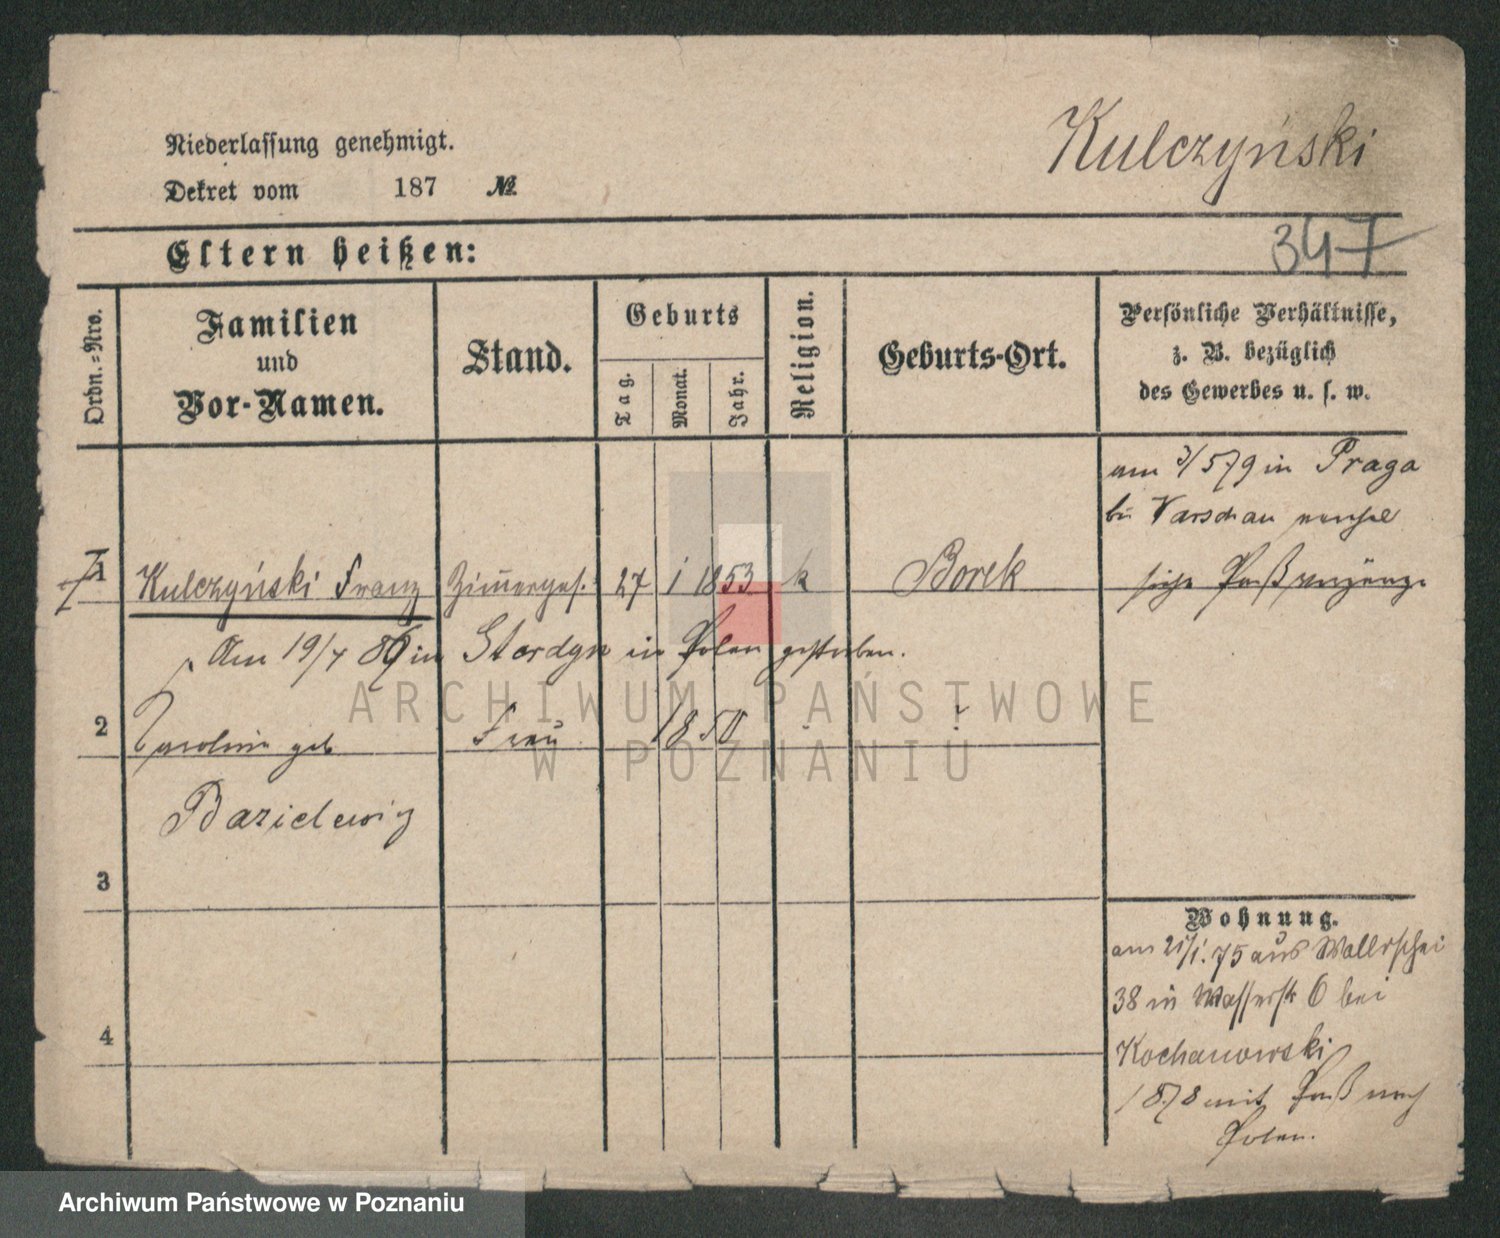 Kulczyński
Niederlassung genehmigt.
Dekret vom 187 №
347
Eltern heißen:
Ordn.-Nro.
Familien
und
Vor-Namen.
Stand.
Geburts
Tag.
Monat.
Jahr.
Religion.
Geburts-Ort.
Persönliche Verhältnisse,
z. B. bezüglich
des Gewerbes u. s. w.
am 3/5 79 in Praga
bei Warschau
siehe
1 Kulczyński Franz Zimerges. 27 1 1853 k Borek
Am 19/7 86 in Stordyn in Polen gestorben.
2 Karoline geb Frau 1850
Bazielewicz
3
4
Wohnung.
am 21/1. 75 aus Wallischei
38 in Wasserstr 6 bei
Kochanowski
1878 mit Paß nach
Polen.
ARCHIWUM PAŃSTWOWE
W POZNANIU
Archiwum Państwowe w Poznaniu